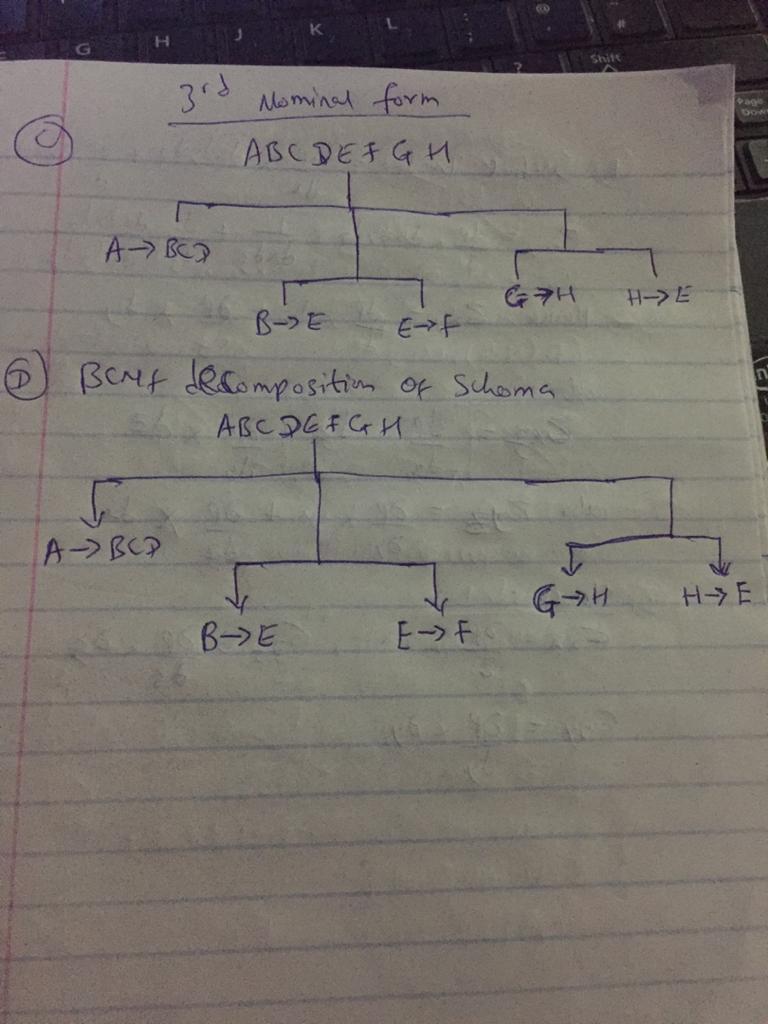 G H J K L : ; @ #
? Shift
Page Down
3rd Nominal form
C
ABCDEFGH
A→BCD
G→H H→E
B→E E→F
D BCNf decomposition of Schema
ABCDEFGH
A→BCD
G→H H→E
B→E E→F